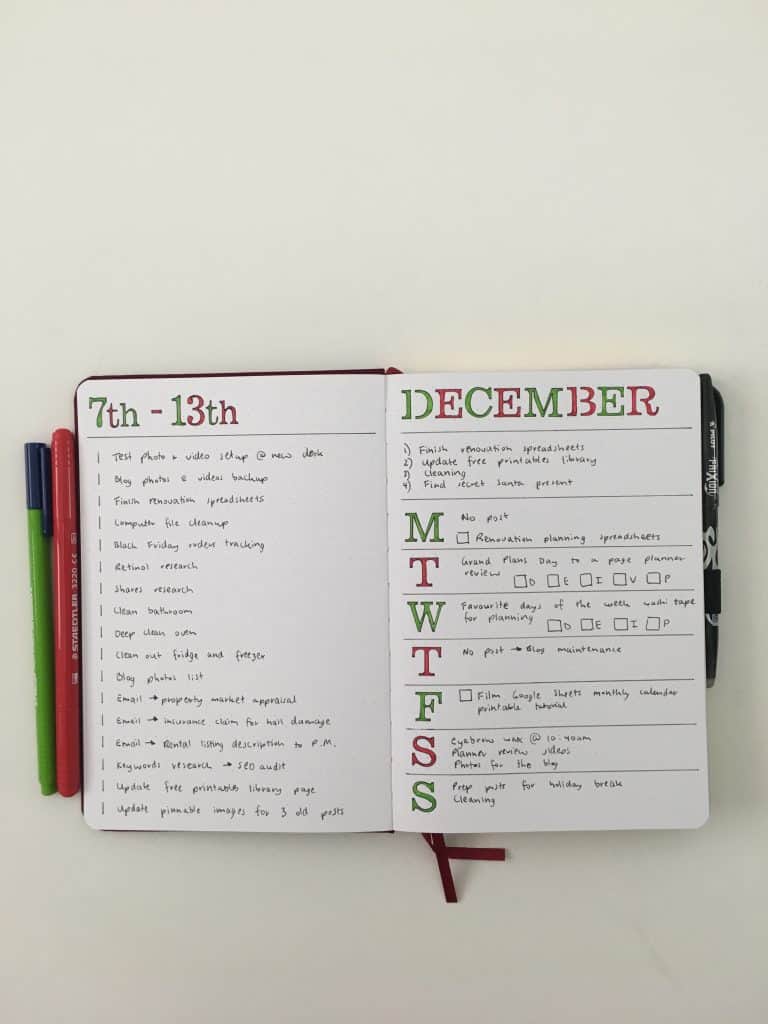 7th - 13th
Test photo & video setup @ new desk
Blog photos & videos backup
Finish renovation spreadsheets
Computer file cleanup
Black Friday orders tracking
Retinol research
Shares research
Clean bathroom
Deep clean oven
Clean out fridge and freezer
Blog photos list
Email → property market appraisal
Email → insurance claim for hail damage
Email → Rental listing description to P.M.
Keywords research → SEO audit
Update free printables library page
Update pinnable images for 3 old posts
DECEMBER
1) Finish renovation spreadsheets
2) Update free printables library
3) Cleaning
4) Find secret santa present
M
No post
Renovation planning spreadsheets
T
Grand Plans Day to a page planner
review D E I V P
W
Favourite days of the week washi tape
for planning D E I P
T
No post → Blog maintenance
F
Film Google Sheets monthly calendar
printable tutorial
S
Eyebrow wax @ 10:40am
Planner review videos
Photos for the blog
S
Prep posts for holiday break
Cleaning
STAEDTLER 3220 CE
PILOT
FRIXION